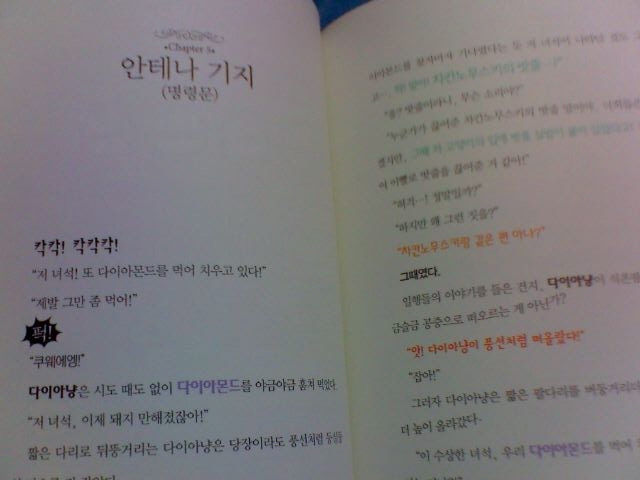 •Chapter 3•
안테나 기지
(명령문)
칵칵! 칵칵칵!
"저 녀석! 또 다이아몬드를 먹어 치우고 있다!"
"제발 그만 좀 먹어!"
퍽!
"쿠웨에엥!"
다이아냥은 시도 때도 없이 다이아몬드를 야금야금 훔쳐 먹었다.
"저 녀석, 이제 돼지 만해졌잖아!"
짧은 다리로 뒤뚱거리는 다이아냥은 당장이라도 풍선처럼 둥실
"응? 밧줄이라니, 무슨 소리야?"
"누군가가 끊어준 차칸노무스키의 밧줄 말이야.
그때 저 고양이의 입에 밧줄
이 이빨로 밧줄을 끊어준 거 같아!"
"허걱…! 정말일까?"
"하지만 왜 그런 짓을?"
"차칸노무스키랑 같은 편 아냐?"
그때였다.
일행들의 이야기를 들은 건지, 다이아냥이
금슬금 공중으로 떠오르는 게 아닌가?
"앗! 다이아냥이 풍선처럼 떠올랐다!"
"잡아!"
그러자 다이아냥은 짧은 팔다리를
더 높이 올라갔다.
"이 수상한 녀석, 우리 다이아몬드를 먹어